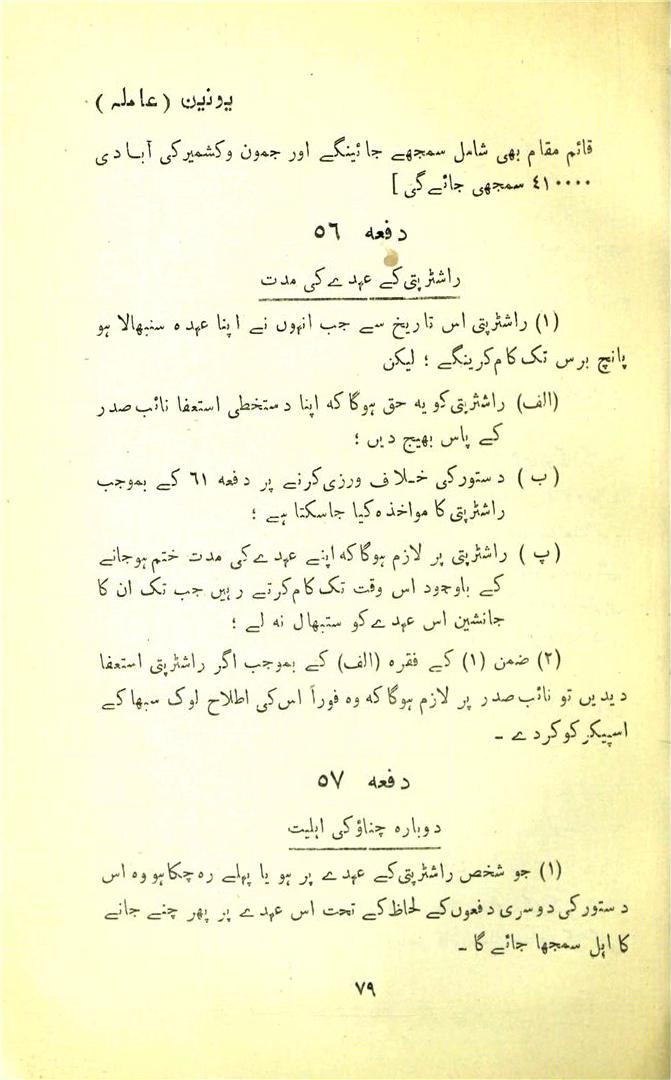 یونین (عاملہ)
قائم مقام بھی شامل سمجھے جائینگے اور جموں وکشمیر کی آبادی
٤١٠٠٠٠ سمجھی جائے گی]
دفعہ ٥٦
راشٹرپتی کے عہدے کی مدت
(١) راشٹرپتی اس تاریخ سے جب انہوں نے اپنا عہدہ سنبھالا ہو
پانچ برس تک کام کرینگے ؛ لیکن
(الف) راشٹرپتی کو یہ حق ہوگا کہ اپنا دستخطی استعفا نائب صدر
کے پاس بھیج دیں ؛
(ب) دستور کی خلاف ورزی کرنے پر دفعہ ٦١ کے بموجب
راشٹرپتی کا مواخذہ کیا جاسکتا ہے ؛
(پ) راشٹرپتی پر لازم ہوگا کہ اپنے عہدے کی مدت ختم ہوجانے
کے باوجود اس وقت تک کام کرتے رہیں جب تک ان کا
جانشین اس عہدے کو ستبھال نہ لے ؛
(٢) ضمن (١) کے فقرہ (الف) کے بموجب اگر راشٹرپتی استعفا
دیدیں تو نائب صدر پر لازم ہوگا کہ وہ فوراً اس کی اطلاح لوک سبھا کے
اسپیکر کو کردے ۔
دفعہ ٥٧
دوبارہ چناؤ کی اہلیت
(١) جو شخص راشٹرپتی کے عہدے پر ہو یا پہلے رہ چکا ہو وہ اس
دستور کی دوسری دفعوں کے لحاظ کے تحت اس عہدے پر پھر چنے جانے
کا اہل سمجھا جائے گا ۔
٧٩